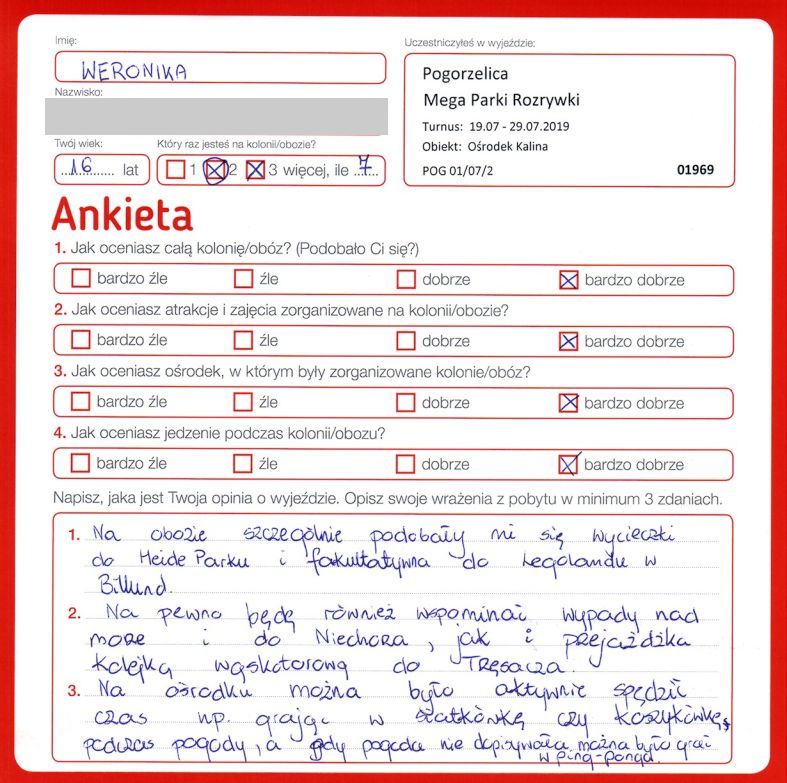 Imię:
WERONIKA
Uczestniczyłeś w wyjeździe:
Pogorzelica
Mega Parki Rozrywki
Turnus: 19.07 - 29.07.2019
Obiekt: Ośrodek Kalina
POG 01/07/2 01969
Nazwisko:
Twój wiek:
16 lat
Który raz jesteś na kolonii/obozie?
1 2 3 więcej, ile 7
Ankieta
1. Jak oceniasz całą kolonię/obóz? (Podobało Ci się?)
bardzo źle źle dobrze bardzo dobrze
2. Jak oceniasz atrakcje i zajęcia zorganizowane na kolonii/obozie?
bardzo źle źle dobrze bardzo dobrze
3. Jak oceniasz ośrodek, w którym były zorganizowane kolonie/obóz?
bardzo źle źle dobrze bardzo dobrze
4. Jak oceniasz jedzenie podczas kolonii/obozu?
bardzo źle źle dobrze bardzo dobrze
Napisz, jaka jest Twoja opinia o wyjeździe. Opisz swoje wrażenia z pobytu w minimum 3 zdaniach.
1. Na obozie szczególnie podobały mi się wycieczki
do Heide Parku i fakultatywna do Legolandu w
Billund.
2. Na pewno będę również wspominać wypady nad
morze i do Niechorza, jak i przejażdżka
kolejką wąskotorową do Trzęsacza.
3. Na ośrodku można było aktywnie spędzić
czas np. grając w siatkówkę czy koszykówkę,
podczas pogody, a gdy pogoda nie dopisywała, można było grać
w ping-ponga.